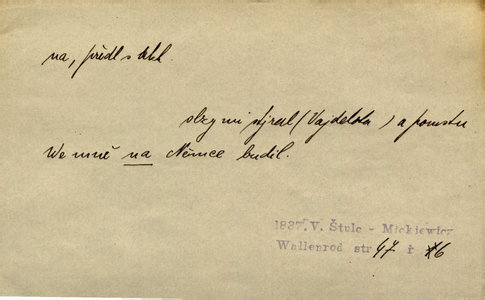 na, předl s akk.
slzy mi stíral (Vajdelota) a pomstu
We mně na Němce budil.
1837. V. Štulc - Mickiewicz
Wallenrod str 47 ř 6